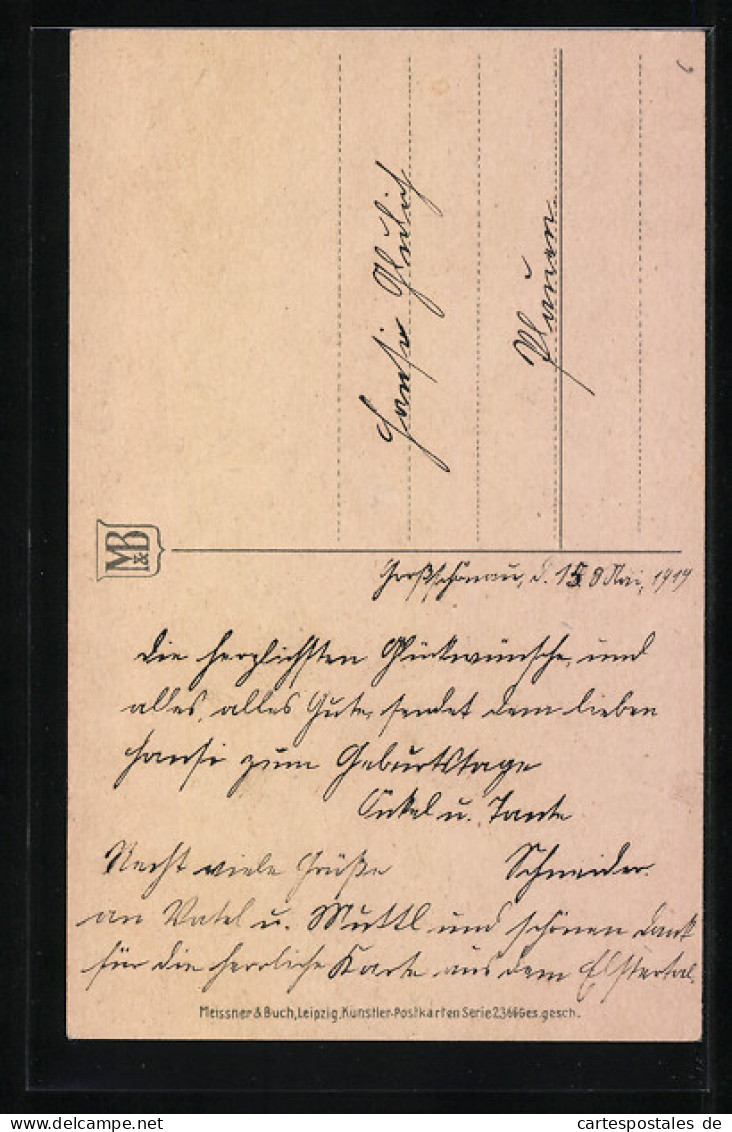 Hansi
Plauen
M&B
Großschönau, d. 15. Mai, 1919
Die herzlichsten Glückwünsche und
alles, alles Gute, sendet dem lieben
Hansi zum Geburtstage
Onkel u. Tante
Schneider.
Recht viele Grüße
an Vatel u. Muttl und schönen Dank
für die herrliche Karte aus dem Elstertal.
Meissner & Buch, Leipzig. Künstler-Postkarten Serie 2366 Ges. gesch.
cartespostales de